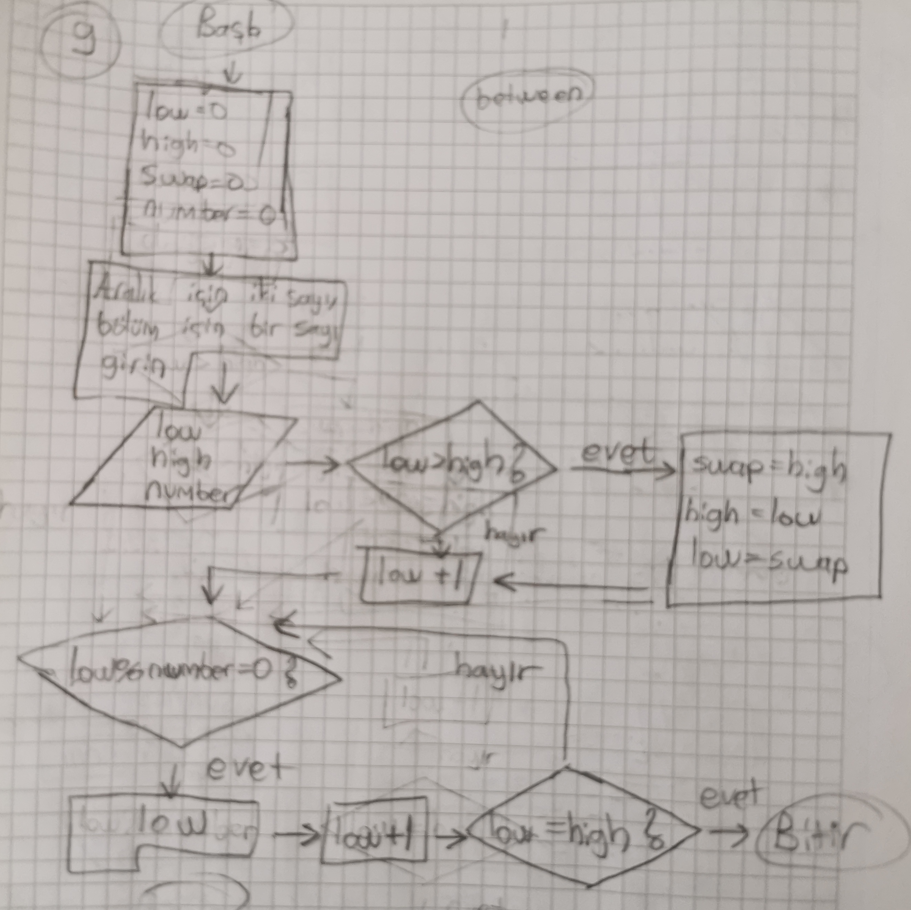 9
Başla
between
low=0
high=0
swap=0
number=0
Aralık için iki sayı
bölüm için bir sayı
girin
low
high
number
low>high?
evet
swap=high
high=low
low=swap
hayır
low+1
low%number=0?
hayır
evet
low
low+1
low=high?
evet
Bitir